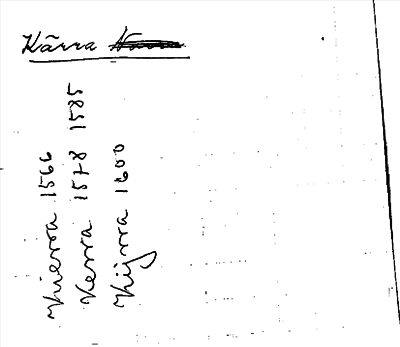 Kärra
Kierra 1566
Kerra 1578 1585
Kijrra 1600